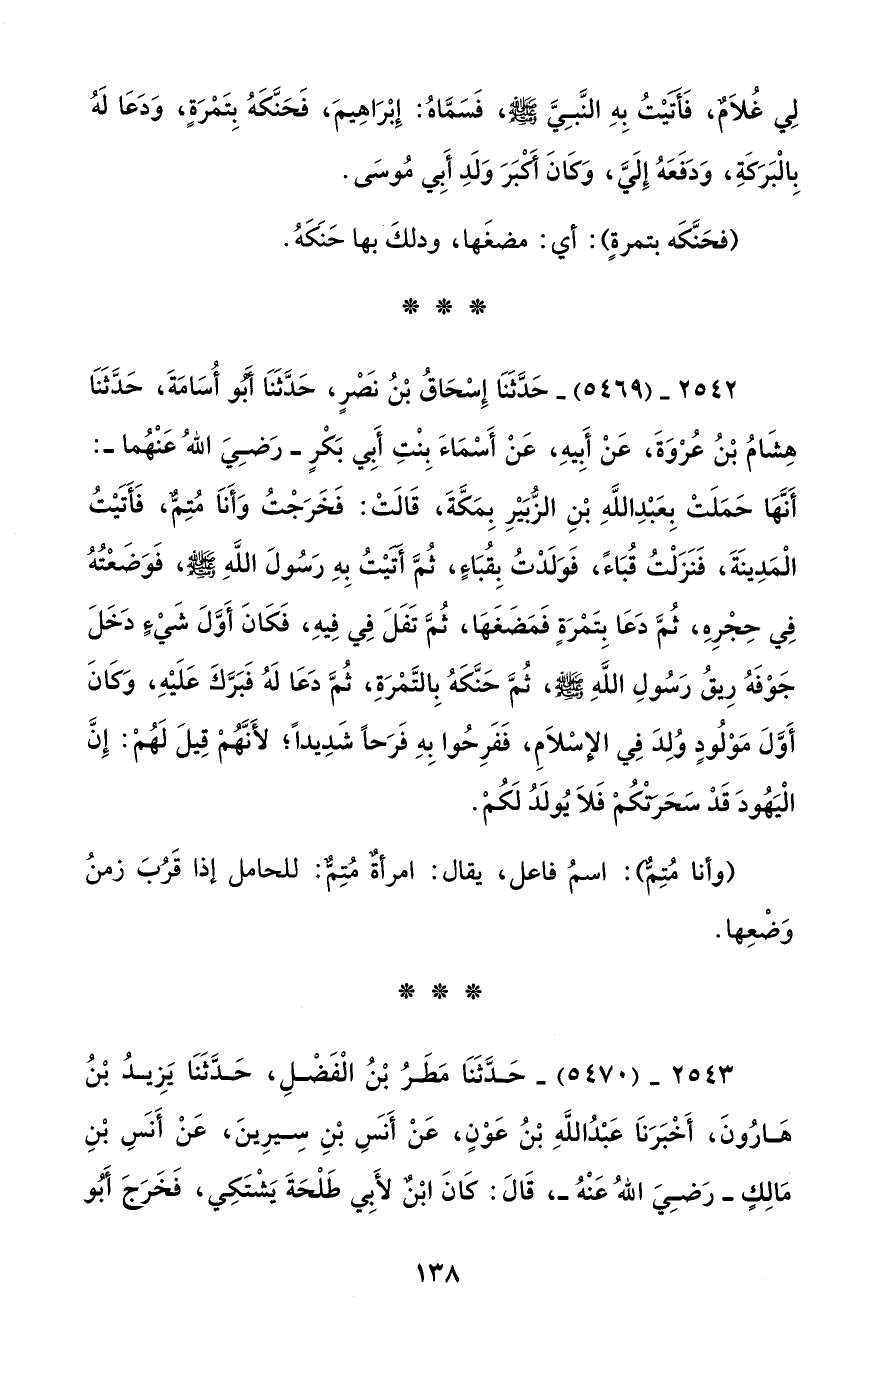 لِي غُلاَمٌ، فَأَتَيْتُ بِهِ النَّبِيَّ ﷺ، فَسَمَّاهُ: إِبْرَاهِيمَ، فَحَنَّكَهُ بِتَمْرَةٍ، وَدَعَا لَهُ
بِالْبَرَكَةِ، وَدَفَعَهُ إِلَيَّ، وَكَانَ أَكْبَرَ وَلَدِ أَبِي مُوسَى.
(فحَنَّكَه بتمرةٍ): أي: مضغَها، ودلكَ بها حَنَكَهُ.
* * *
٢٥٤٢ ـ (٥٤٦٩) ـ حَدَّثَنَا إِسْحَاقُ بْنُ نَصْرٍ، حَدَّثَنَا أَبُو أُسَامَةَ، حَدَّثَنَا
هِشَامُ بْنُ عُرْوَةَ، عَنْ أَبِيهِ، عَنْ أَسْمَاءَ بِنْتِ أَبِي بَكْرٍ ـ رَضيَ اللهُ عَنْهُما ـ:
أَنَّهَا حَمَلَتْ بِعَبْدِاللَّهِ بْنِ الزُّبَيْرِ بِمَكَّةَ، قَالَتْ: فَخَرَجْتُ وَأَنَا مُتِمٌّ، فَأَتَيْتُ
الْمَدِينَةَ، فَنَزَلْتُ قُبَاءً، فَوَلَدْتُ بِقُبَاءٍ، ثُمَّ أَتَيْتُ بِهِ رَسُولَ اللَّهِ ﷺ، فَوَضَعْتُهُ
فِي حِجْرِهِ، ثُمَّ دَعَا بِتَمْرَةٍ فَمَضَغَهَا، ثُمَّ تَفَلَ فِي فِيهِ، فَكَانَ أَوَّلَ شَيْءٍ دَخَلَ
جَوْفَهُ رِيقُ رَسُولِ اللَّهِ ﷺ، ثُمَّ حَنَّكَهُ بِالتَّمْرَةِ، ثُمَّ دَعَا لَهُ فَبَرَّكَ عَلَيْهِ، وَكَانَ
أَوَّلَ مَوْلُودٍ وُلِدَ فِي الإِسْلاَمِ، فَفَرِحُوا بِهِ فَرَحاً شَدِيداً؛ لأَنَّهُمْ قِيلَ لَهُمْ: إِنَّ
الْيَهُودَ قَدْ سَحَرَتْكُمْ فَلاَ يُولَدُ لَكُمْ.
(وأنا مُتِمٌّ): اسمُ فاعل، يقال: امرأةٌ مُتِمٌّ: للحامل إذا قَرُبَ زمنُ
وَضْعِها.
* * *
٢٥٤٣ ـ (٥٤٧٠) ـ حَدَّثَنَا مَطَرُ بْنُ الْفَضْلِ، حَدَّثَنَا يَزِيدُ بْنُ
هَارُونَ، أَخْبَرَنَا عَبْدُاللَّهِ بْنُ عَوْنٍ، عَنْ أَنَسِ بْنِ سِيرِينَ، عَنْ أَنَسِ بْنِ
مَالِكٍ ـ رَضيَ اللهُ عَنْهُ ـ، قَالَ: كَانَ ابْنٌ لأَبِي طَلْحَةَ يَشْتَكِي، فَخَرَجَ أَبُو
١٣٨